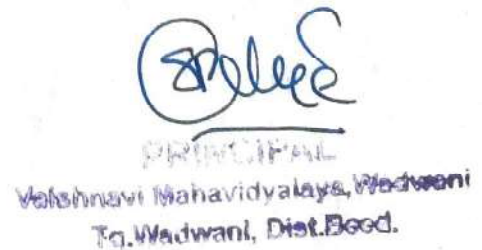 PRINCIPAL
Vaishnavi Mahavidyalaya, Wadwani
Tq.Wadwani, Dist.Beed.